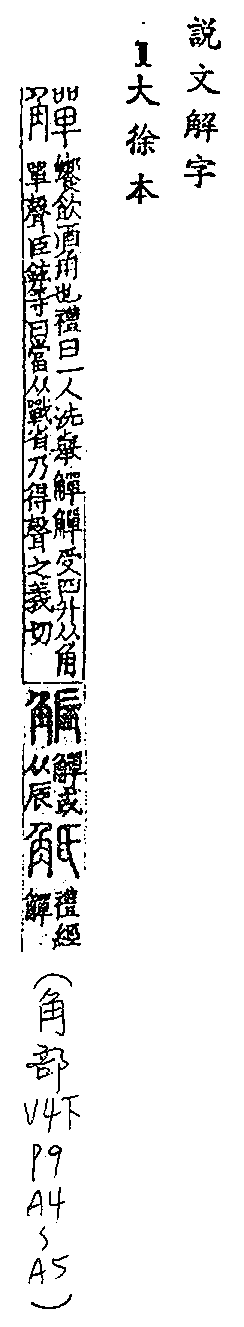 説文解字
1大徐本
觶 饗飲酒角也禮曰一人洗舉觶觶受四升从角
單聲臣鉉等曰當从戰省乃得聲之義切
觶或
从辰
禮經
觶
(角部
V4下
P9
A4
~
A5)